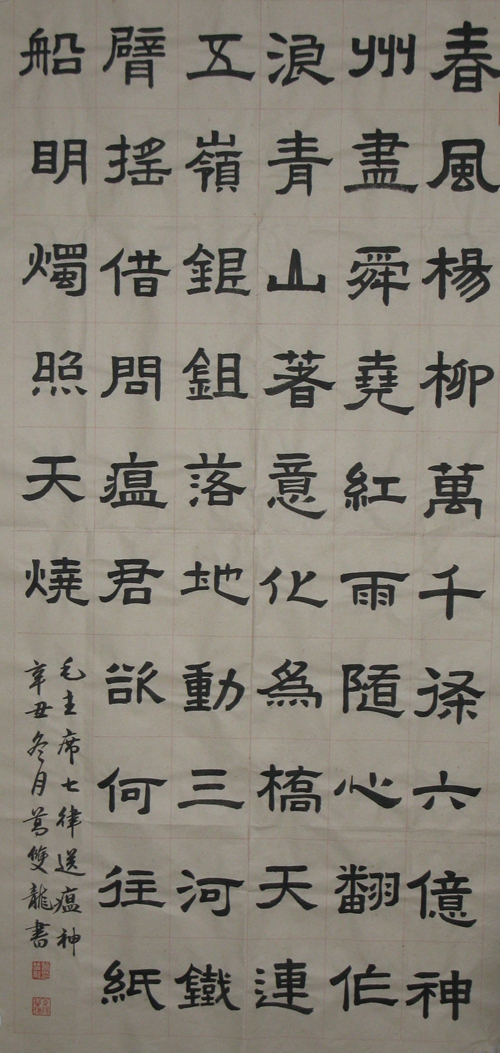 春風楊柳萬千條六億神
州盡舜堯紅雨隨心翻作
浪青山著意化為橋天連
五嶺銀鉏落地動三河鐵
臂搖借問瘟君欲何往紙
船明燭照天燒
毛主席七律送瘟神
辛丑冬月葛雙龍書